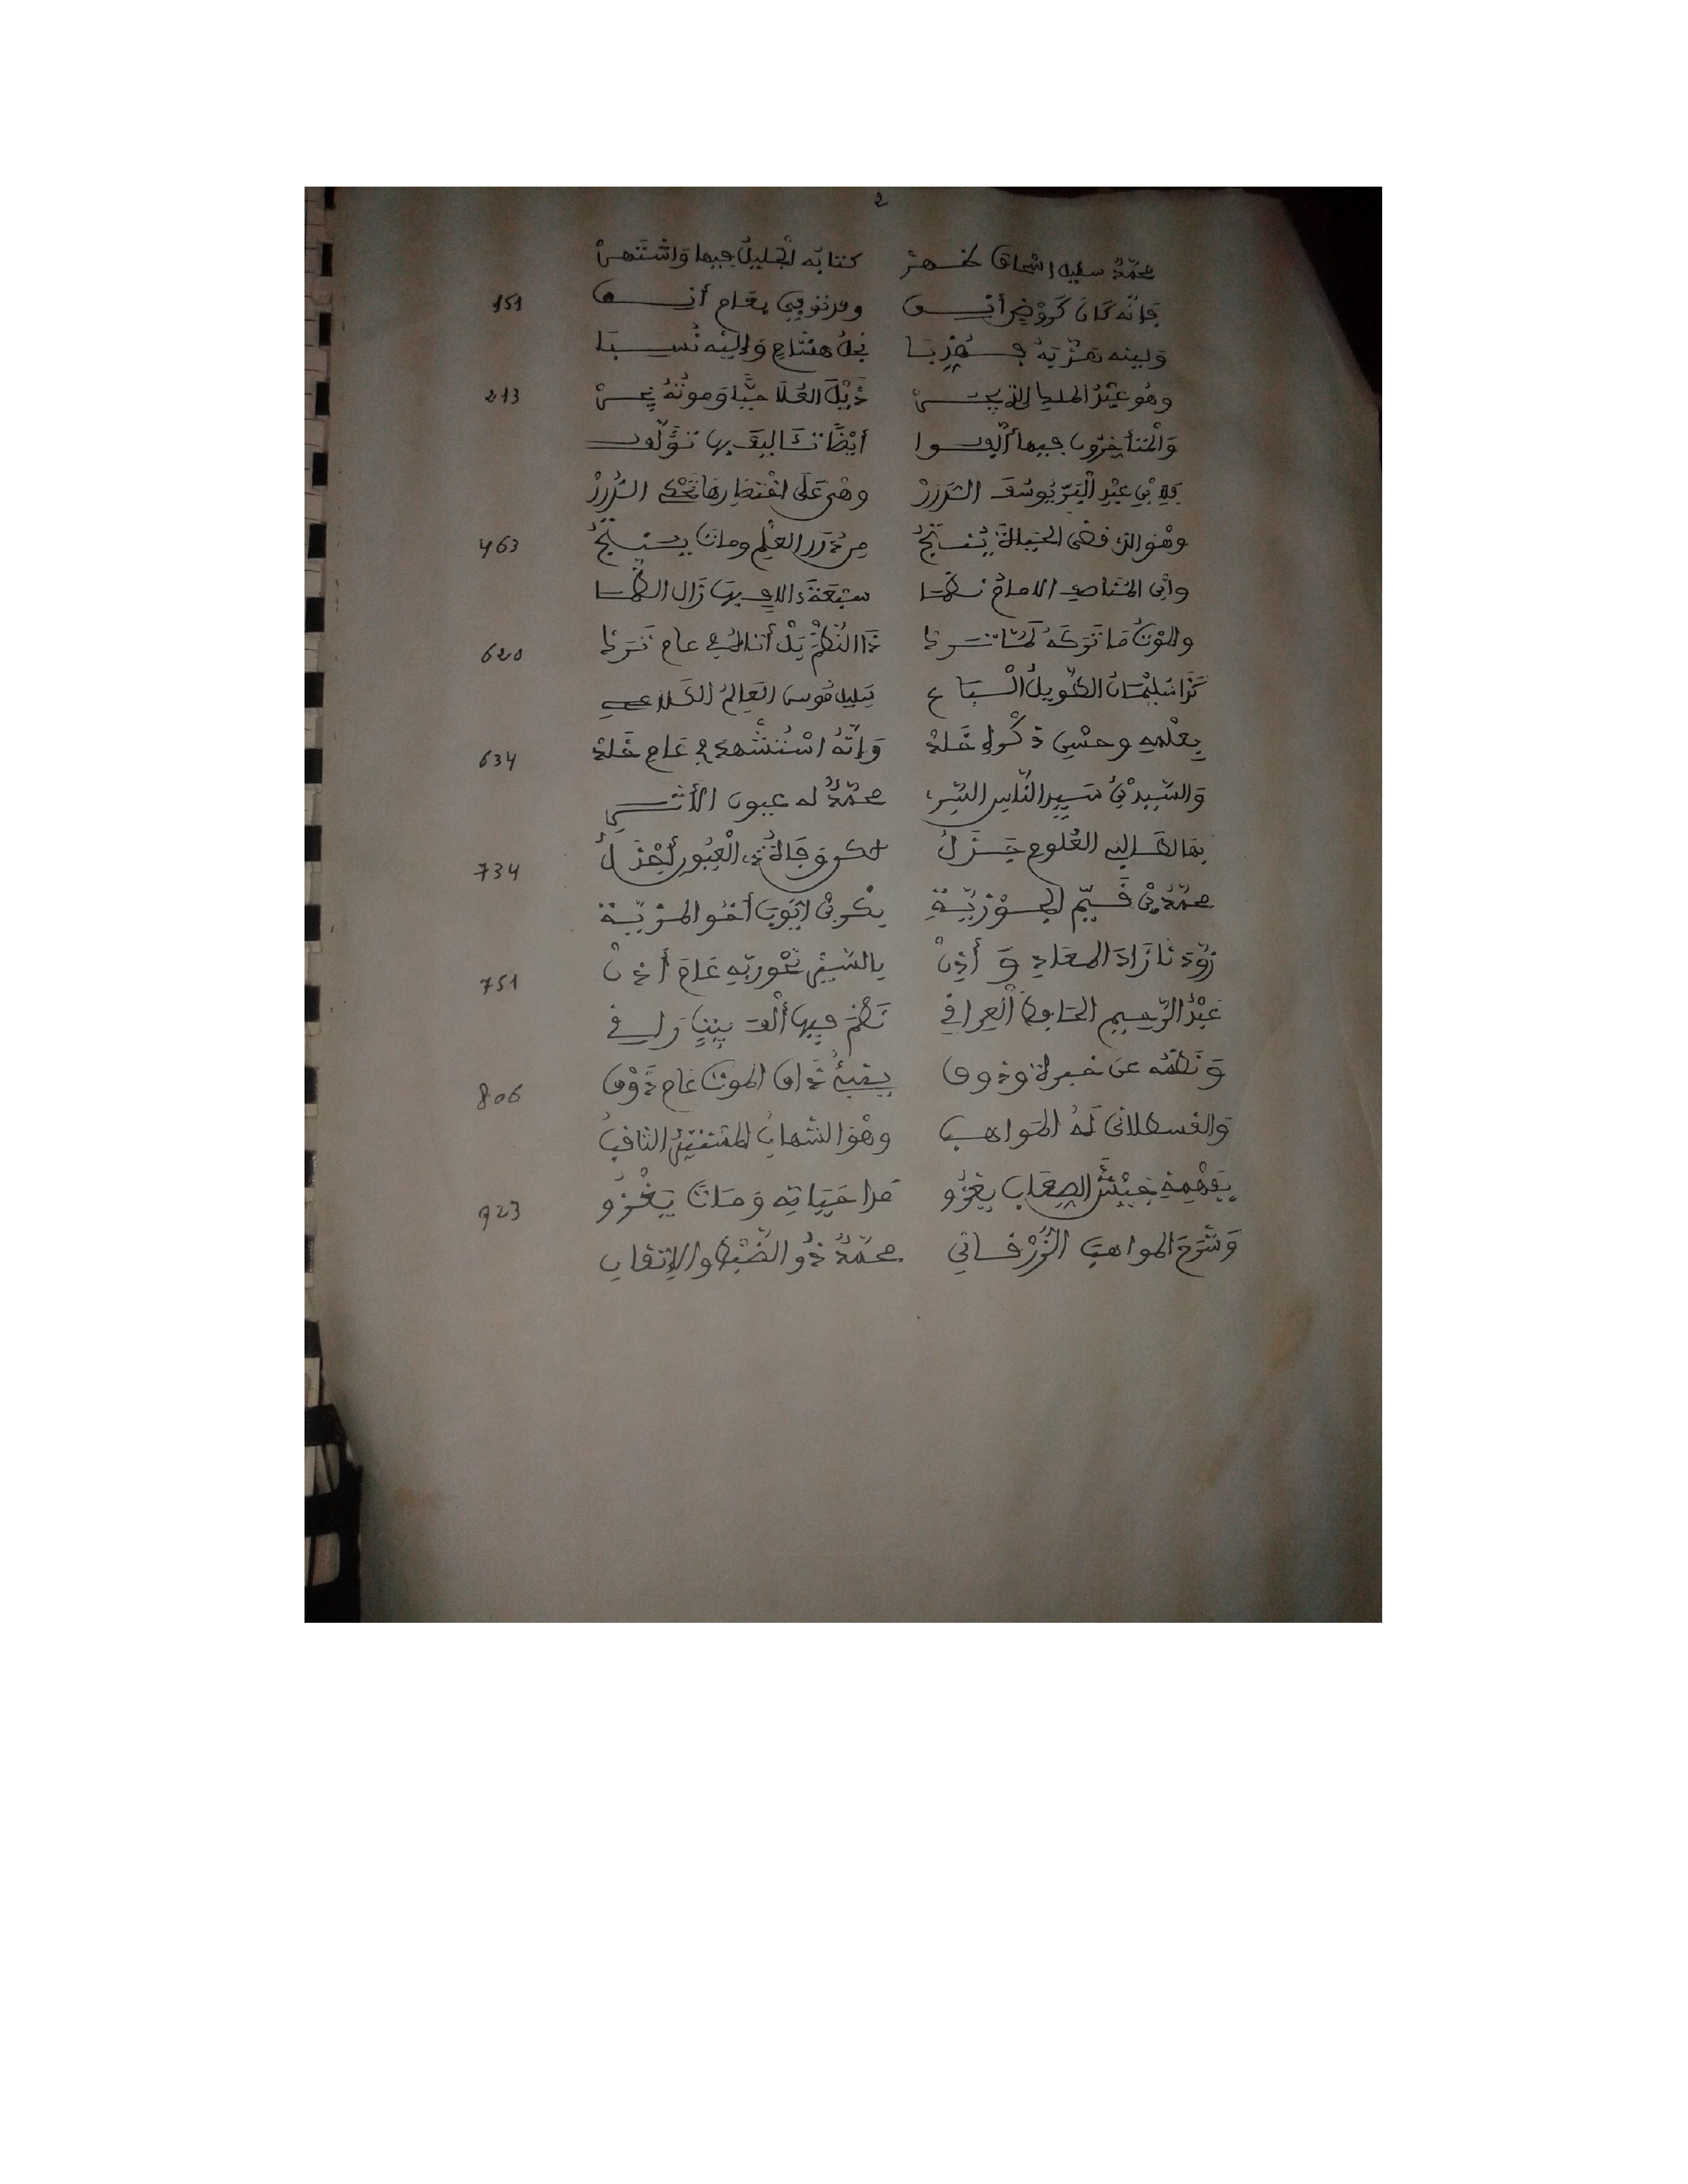 2
محمّدٌ سليل اسْحاق ظهرْ كتابه الجليلُ فيها وَاشْتَهرْ
فإنّه كانَ كَرَوْضٍ أنِق وقد تُوُفّي بعَام أنق 151
وبينه تهذيبه قد هُذّبَا نجلُ هشامٍ وَإليْه نُسبَا
وهُو عبْدُ الملك الذي يجرْ ذَيْلَ العُلَا حيًّا وموته يجرْ 213
وَالمتأخرون فيها ألّفوا أيْضًا تآليفَ بها تؤلّف
فلابْنِ عبْدِ الْبَرّ يُوسُفَ الدررْ وهْي عَلَى اخْتصارها تحْكي الدُّررْ
وهْو الذي قضى الحياةَ يُنْتجُ مِن دُرَر العِلْمِ وماتَ يستنتجُ 463
وابن المُناصف الامامُ نظما سبْعَةَ ءالاف بهَا زَال الظما
والموْتُ مَا تَركَهُ لمّا ترك ذَا النُّظْمَ بَلْ أتاهُ في عام ترك 620
كذا سُليْمَانُ الطّويلُ الْبَاع سَليلُ مُوسى العَالِمُ الكلاعي
بعلْمه وحسْنِ ذكْره خَلَدْ وَإنّهُ اسْتُشْهدَ في عَامِ خَلَدْ 634
وَالسّيد بْنُ سَيد النّاس السّري محمّدٌ له عيون الأثَر
بهَا له إليه العُلوم جَذَلُ لكن وفاةُ ذي الْعُيُونِ أجْذَلُ 734
محمّدُ بْن قَيّم الجوْزيّةِ بكر بْن أيّوبَ أخُو المزيّة
زوّدَنَا زَادَ المعَادِ وَأَذِنْ بالسّيْرِ نحْو ربّهِ عَامَ أَذِنْ 751
عَبْدُ الرّحيمِ الحَافظُ الْعِراقي نَظَمَ فيها ألْفَ بيْتٍ رَاق
وَنَظْمُه عن خبرة وذوق يُنْبئُ ذَاقَ الموتَ عَام ذَوْق 806
وَالقسطلاني لَهُ المَواهب وهْو الشهابُ المسْتنيرُ الثاقبُ
بفَهْمِهِ جَيْشَ الصِعَاب يغزُو مدا حَيَاتِه وَمَاتَ يَغْزُو 923
وَشَرَحَ المواهبَ الزُّرْقَاني محمّدٌ ذُو الضّبْط والإتقان